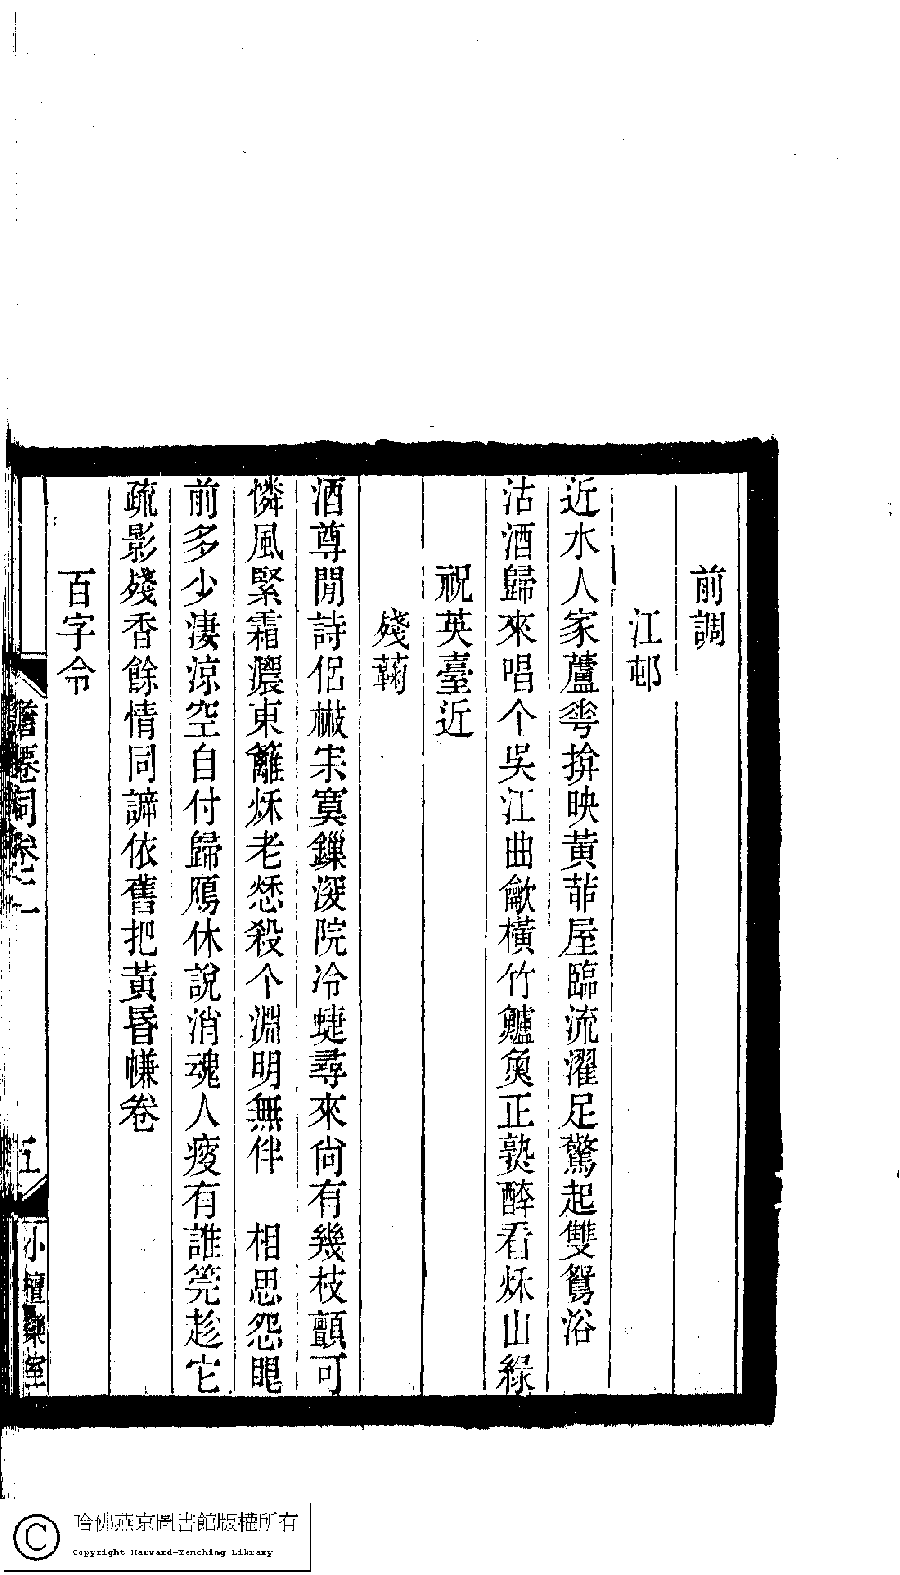 前調
江邨
近水人家蘆雩揜映黃茆屋臨流濯足驚起雙鴛浴
沽酒歸來唱个吳江曲龡橫竹鱸魚正孰醉看烁山綠
祝英臺近
殘蘜
酒尊閒詩侶𢿱宗寞鏁深院冷蜨尋來尙有幾枝顫可
憐風緊霜濃東籬烁老愁殺个淵明無伴　相思怨眼
前多少淒涼空自付歸鴈休說消魂人瘦有誰筦趁它
疏影殘香餘情同諦依舊把黃昬㡘卷
百字令
詞卷一
五
小檀欒室
哈佛燕京圖書館版權所有
Copyright Harvard-Yenching Library